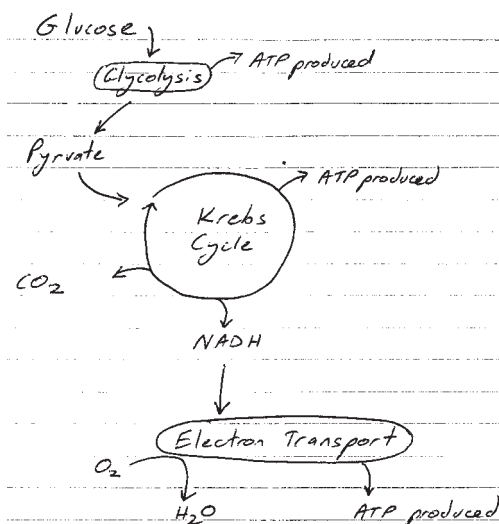 Glucose
Glycolysis
ATP produced
Pyruvate
ATP produced
Krebs
Cycle
CO₂
NADH
Electron Transport
O₂
H₂O
ATP produced